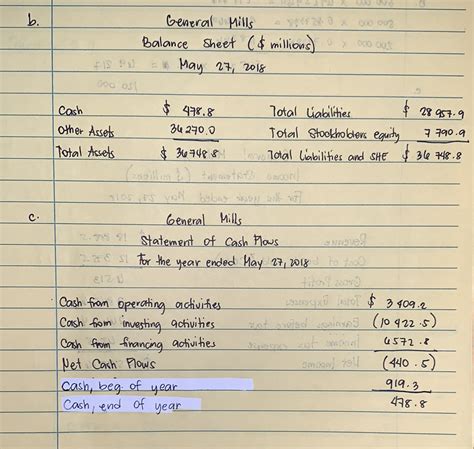 b.
General Mills
Balance Sheet ($ millions)
May 27, 2018
Cash $ 478.8 Total Liabilities $ 28 957.9
Other Assets 36 270.0 Total Stockholders equity 7 790.9
Total Assets $ 36 748.8 Total Liabilities and SHE $ 36 748.8
c.
General Mills
Statement of Cash Flows
For the year ended May 27, 2018
Cash from operating activities $ 3 409.2
Cash from investing activities (10 422.5)
Cash from financing activities 6572.8
Net Cash Flows (440.5)
Cash, beg. of year 919.3
Cash, end of year 478.8